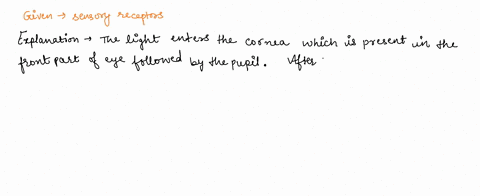 Given → sensory receptors
Explanation → The light enters the cornea which is present in the
front part of eye followed by the pupil. After